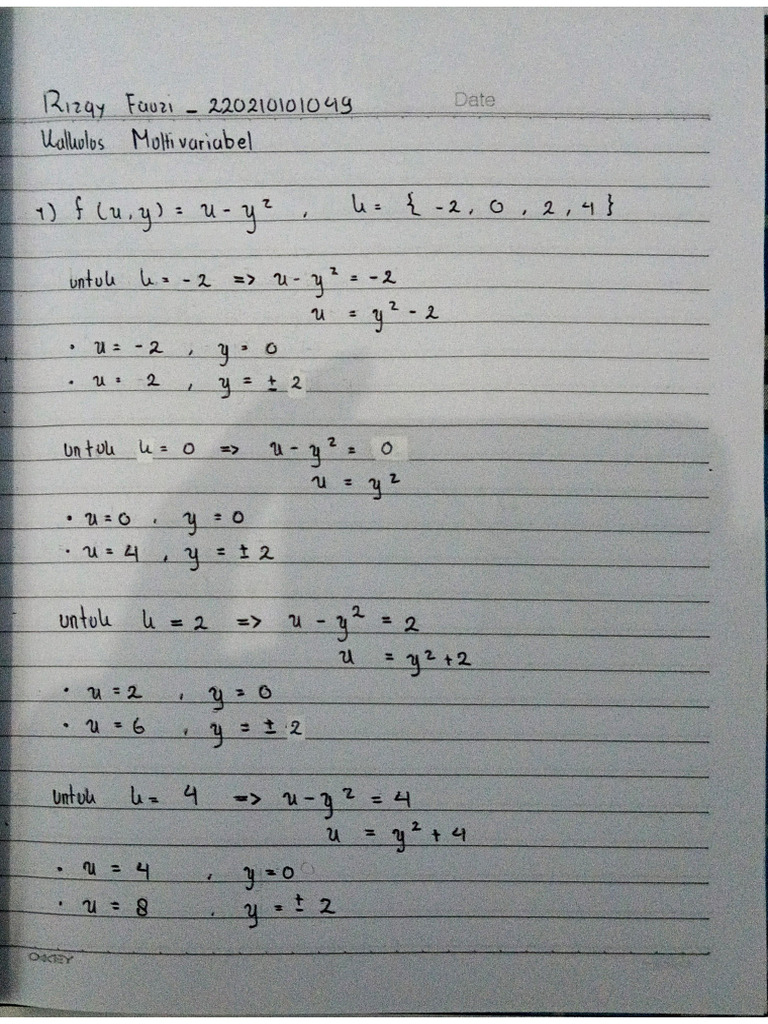 Rizqy Fauzi - 220210101049
Date
Kalkulus Multivariabel
1) f(x,y) = x - y² , k = { -2, 0, 2, 4 }
untuk k = -2 => x - y² = -2
x = y² - 2
• x = -2 , y = 0
• x = 2 , y = ± 2
untuk k = 0 => x - y² = 0
x = y²
• x = 0 , y = 0
• x = 4 , y = ± 2
untuk k = 2 => x - y² = 2
x = y² + 2
• x = 2 , y = 0
• x = 6 , y = ± 2
untuk k = 4 => x - y² = 4
x = y² + 4
• x = 4 , y = 0
• x = 8 , y = ± 2
OKEY